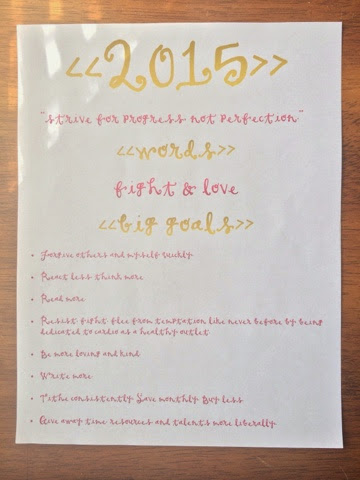 <<2015>>
"strive for progress not perfection"
<<words>>
fight & love
<<big goals>>
• Forgive others and myself quickly
• React less think more
• Read more
• Resist fight flee from temptation like never before by being
dedicated to cardio as a healthy outlet
• Be more loving and kind
• Write more
• Tithe consistently Save monthly Buy less
• Give away time resources and talents more liberally